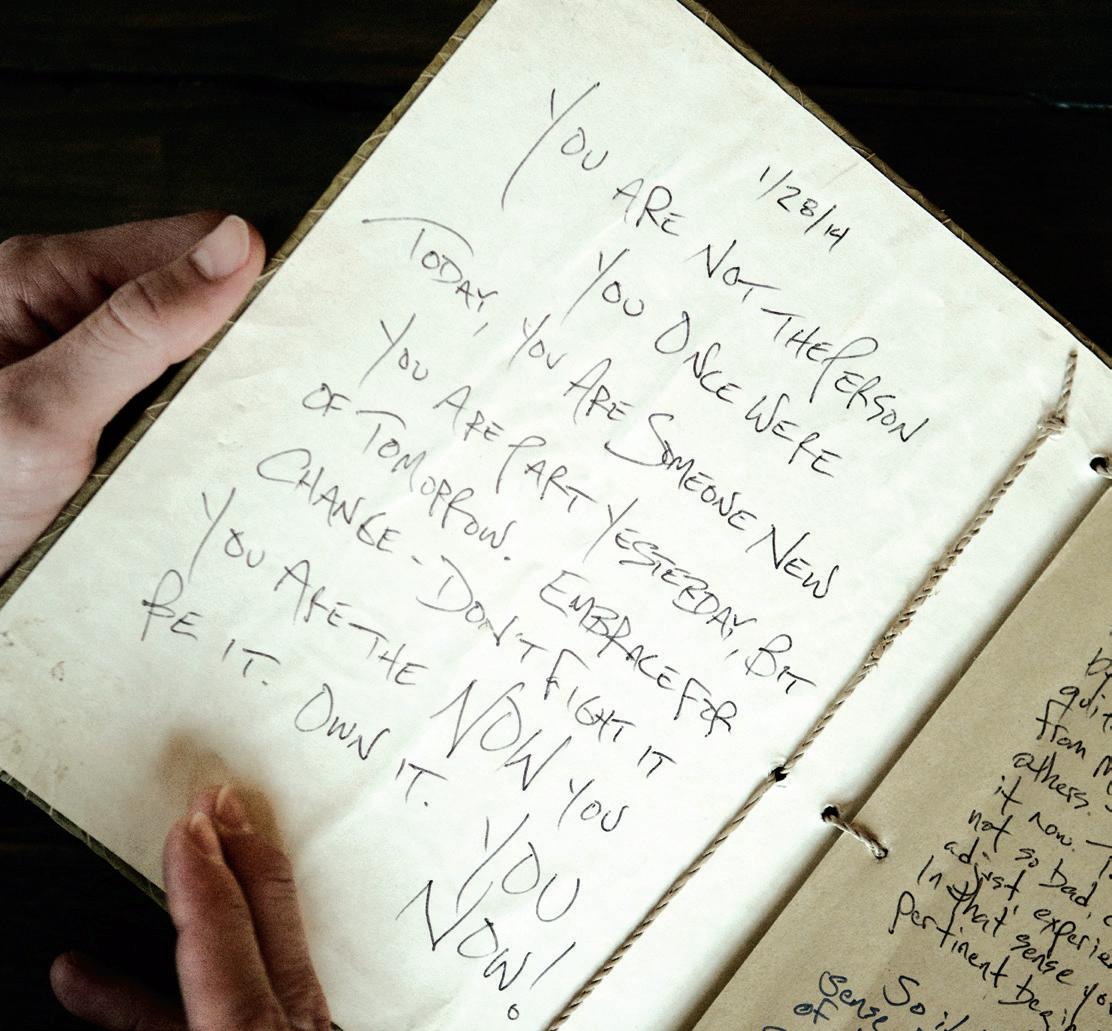 1/28/14
YOU ARE NOT THE PERSON
YOU ONCE WERE
TODAY, YOU ARE SOMEONE NEW
YOU ARE PART YESTERDAY, BIT
OF TOMORROW. EMBRACE FOR
CHANGE - DON'T FIGHT IT
YOU ARE THE NOW YOU
BE IT. OWN IT.
YOU
NOW!
from
others.
it now.
not so bad,
adjust,
In that sense
pertinent
So
sense
of